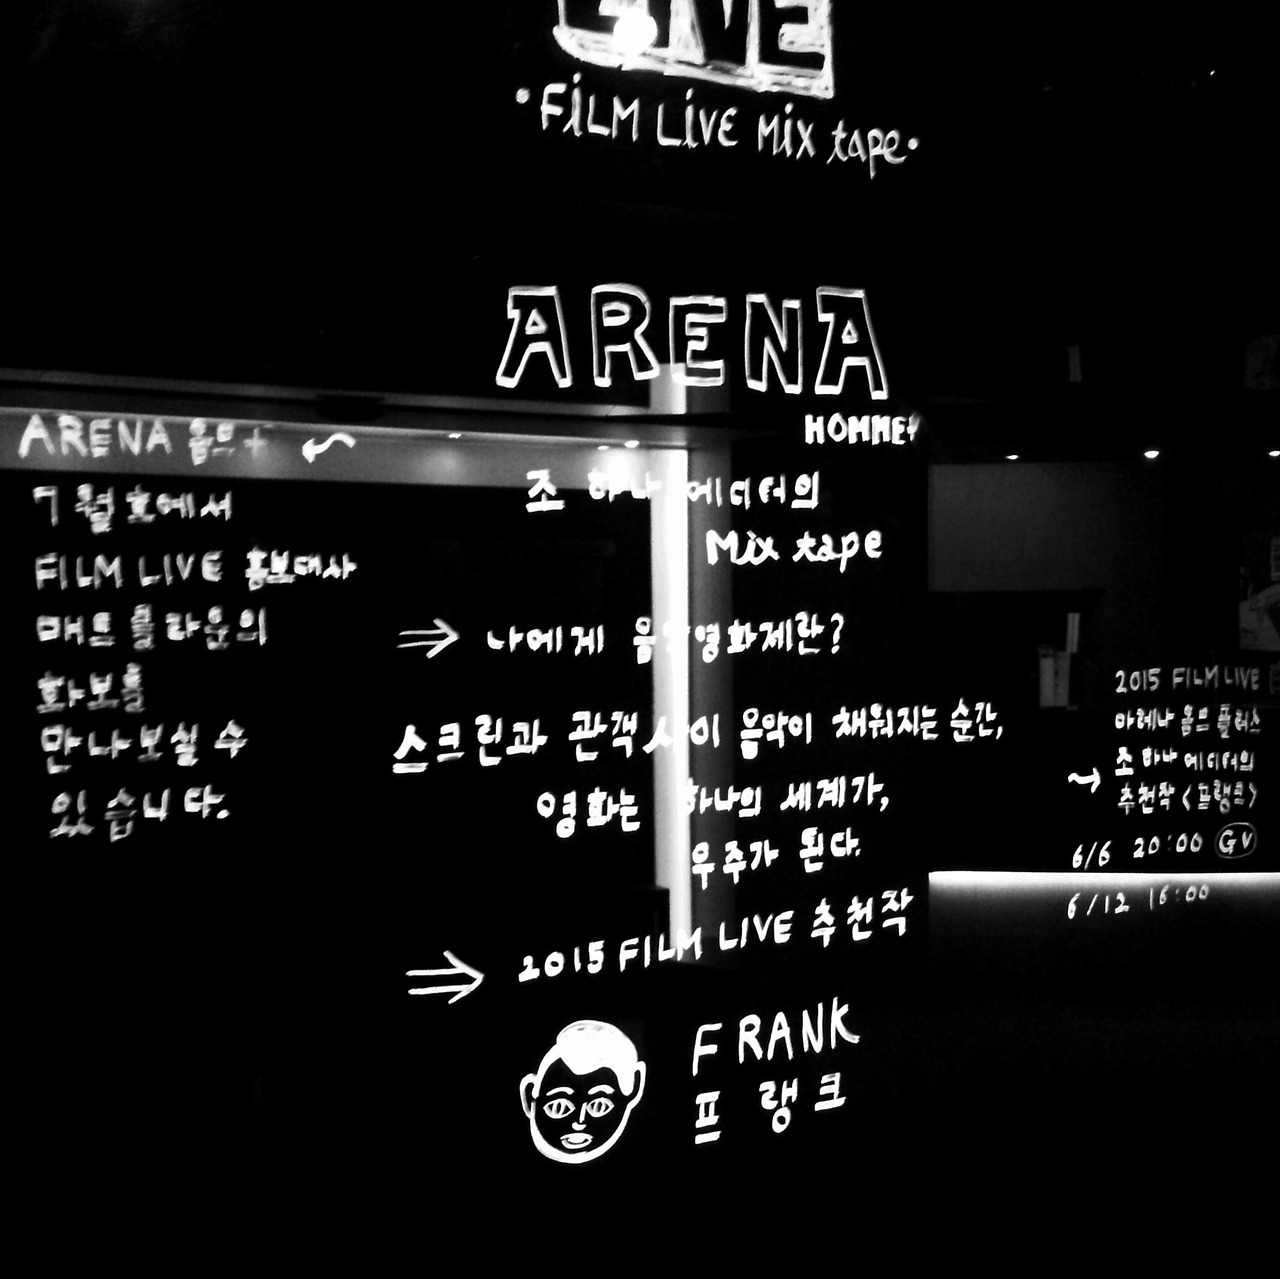 LIVE
·FiLM LiVE Mix tape·
ARENA
HOMME+
조 하나 에디터의
Mix tape
⇒ 나에게 음악영화제란?
스크린과 관객 사이 음악이 채워지는 순간,
영화는 하나의 세계가,
우주가 된다.
⇒ 2015 FILM LIVE 추천작
FRANK
프랭크
ARENA 옴므+
7월호에서
FILM LIVE 홍보대사
매트 클라운의
화보를
만나보실 수
있습니다.
2015 FILM LIVE
아레나 옴므 플러스
조 하나 에디터의
추천작 <프랭크>
6/6 20:00 GV
6/12 16:00